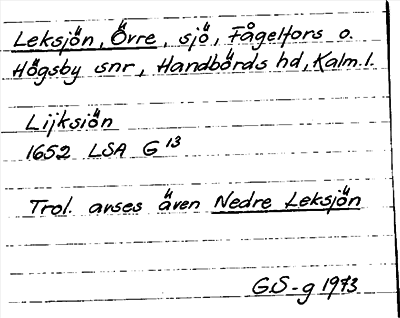 Leksjön, Övre, sjö, Fågelfors o.
Högsby snr, Handbörds hd, Kalm. l.
Lijksiön
1652 LSA G 13
Trol. avses även Nedre Leksjön
G.S-g 1973